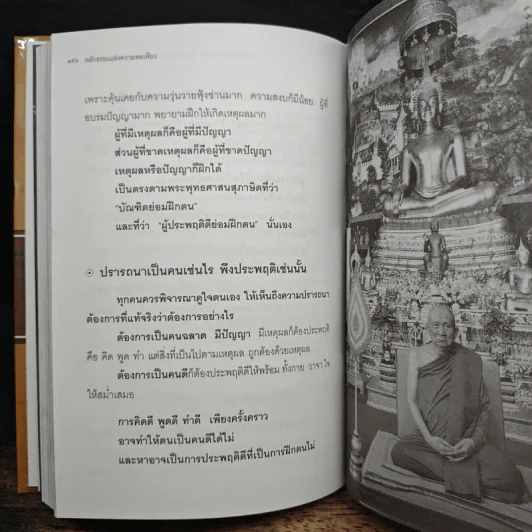 ๑๕๖ หลักธรรมแห่งความพอเพียง
เพราะคุ้นเคยกับความวุ่นวายฟุ้งซ่านมาก ความสงบก็มีน้อย ผู้ที่
อบรมปัญญามาก พยายามฝึกให้เกิดเหตุผลมาก
ผู้ที่มีเหตุผลก็คือผู้ที่มีปัญญา
ส่วนผู้ที่ขาดเหตุผลก็คือผู้ที่ขาดปัญญา
เหตุผลหรือปัญญาก็ฝึกได้
เป็นตรงตามพระพุทธศาสนสุภาษิตที่ว่า
“บัณฑิตย่อมฝึกตน”
และที่ว่า “ผู้ประพฤติดีย่อมฝึกตน” นั่นเอง
ปรารถนาเป็นคนเช่นไร พึงประพฤติเช่นนั้น
ทุกคนควรพิจารณาดูใจตนเอง ให้เห็นถึงความปรารถนา
ต้องการที่แท้จริงว่าต้องการอย่างไร
ต้องการเป็นคนฉลาด มีปัญญา มีเหตุผลก็ต้องประพฤติ
คือ คิด พูด ทำ แต่สิ่งที่เป็นไปตามเหตุผล ถูกต้องด้วยเหตุผล
ต้องการเป็นคนดีก็ต้องประพฤติดีให้พร้อม ทั้งกาย วาจา ใจ
ให้สม่ำเสมอ
การคิดดี พูดดี ทำดี เพียงครั้งคราว
อาจทำให้ตนเป็นคนดีได้ไม่
และหาอาจเป็นการประพฤติดีที่เป็นการฝึกตนไม่